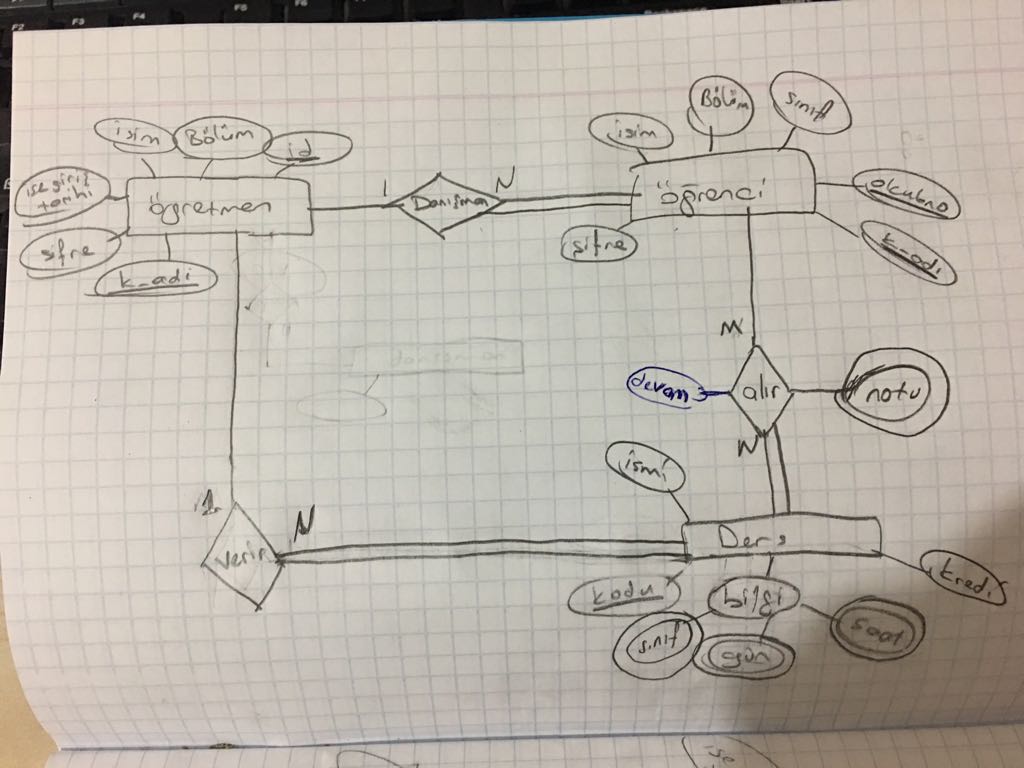 F2
F3
F4
isim
Bölüm
id
işe giriş
tarihi
öğretmen
şifre
k_adi
1
Danışman
N
isim
Bölüm
sınıf
öğrenci
okulno
k_adi
şifre
danışman
M
devam
alır
notu
N
ismi
1
verir
N
Ders
kodu
bilgi
kredi
sınıf
gün
saat
işe